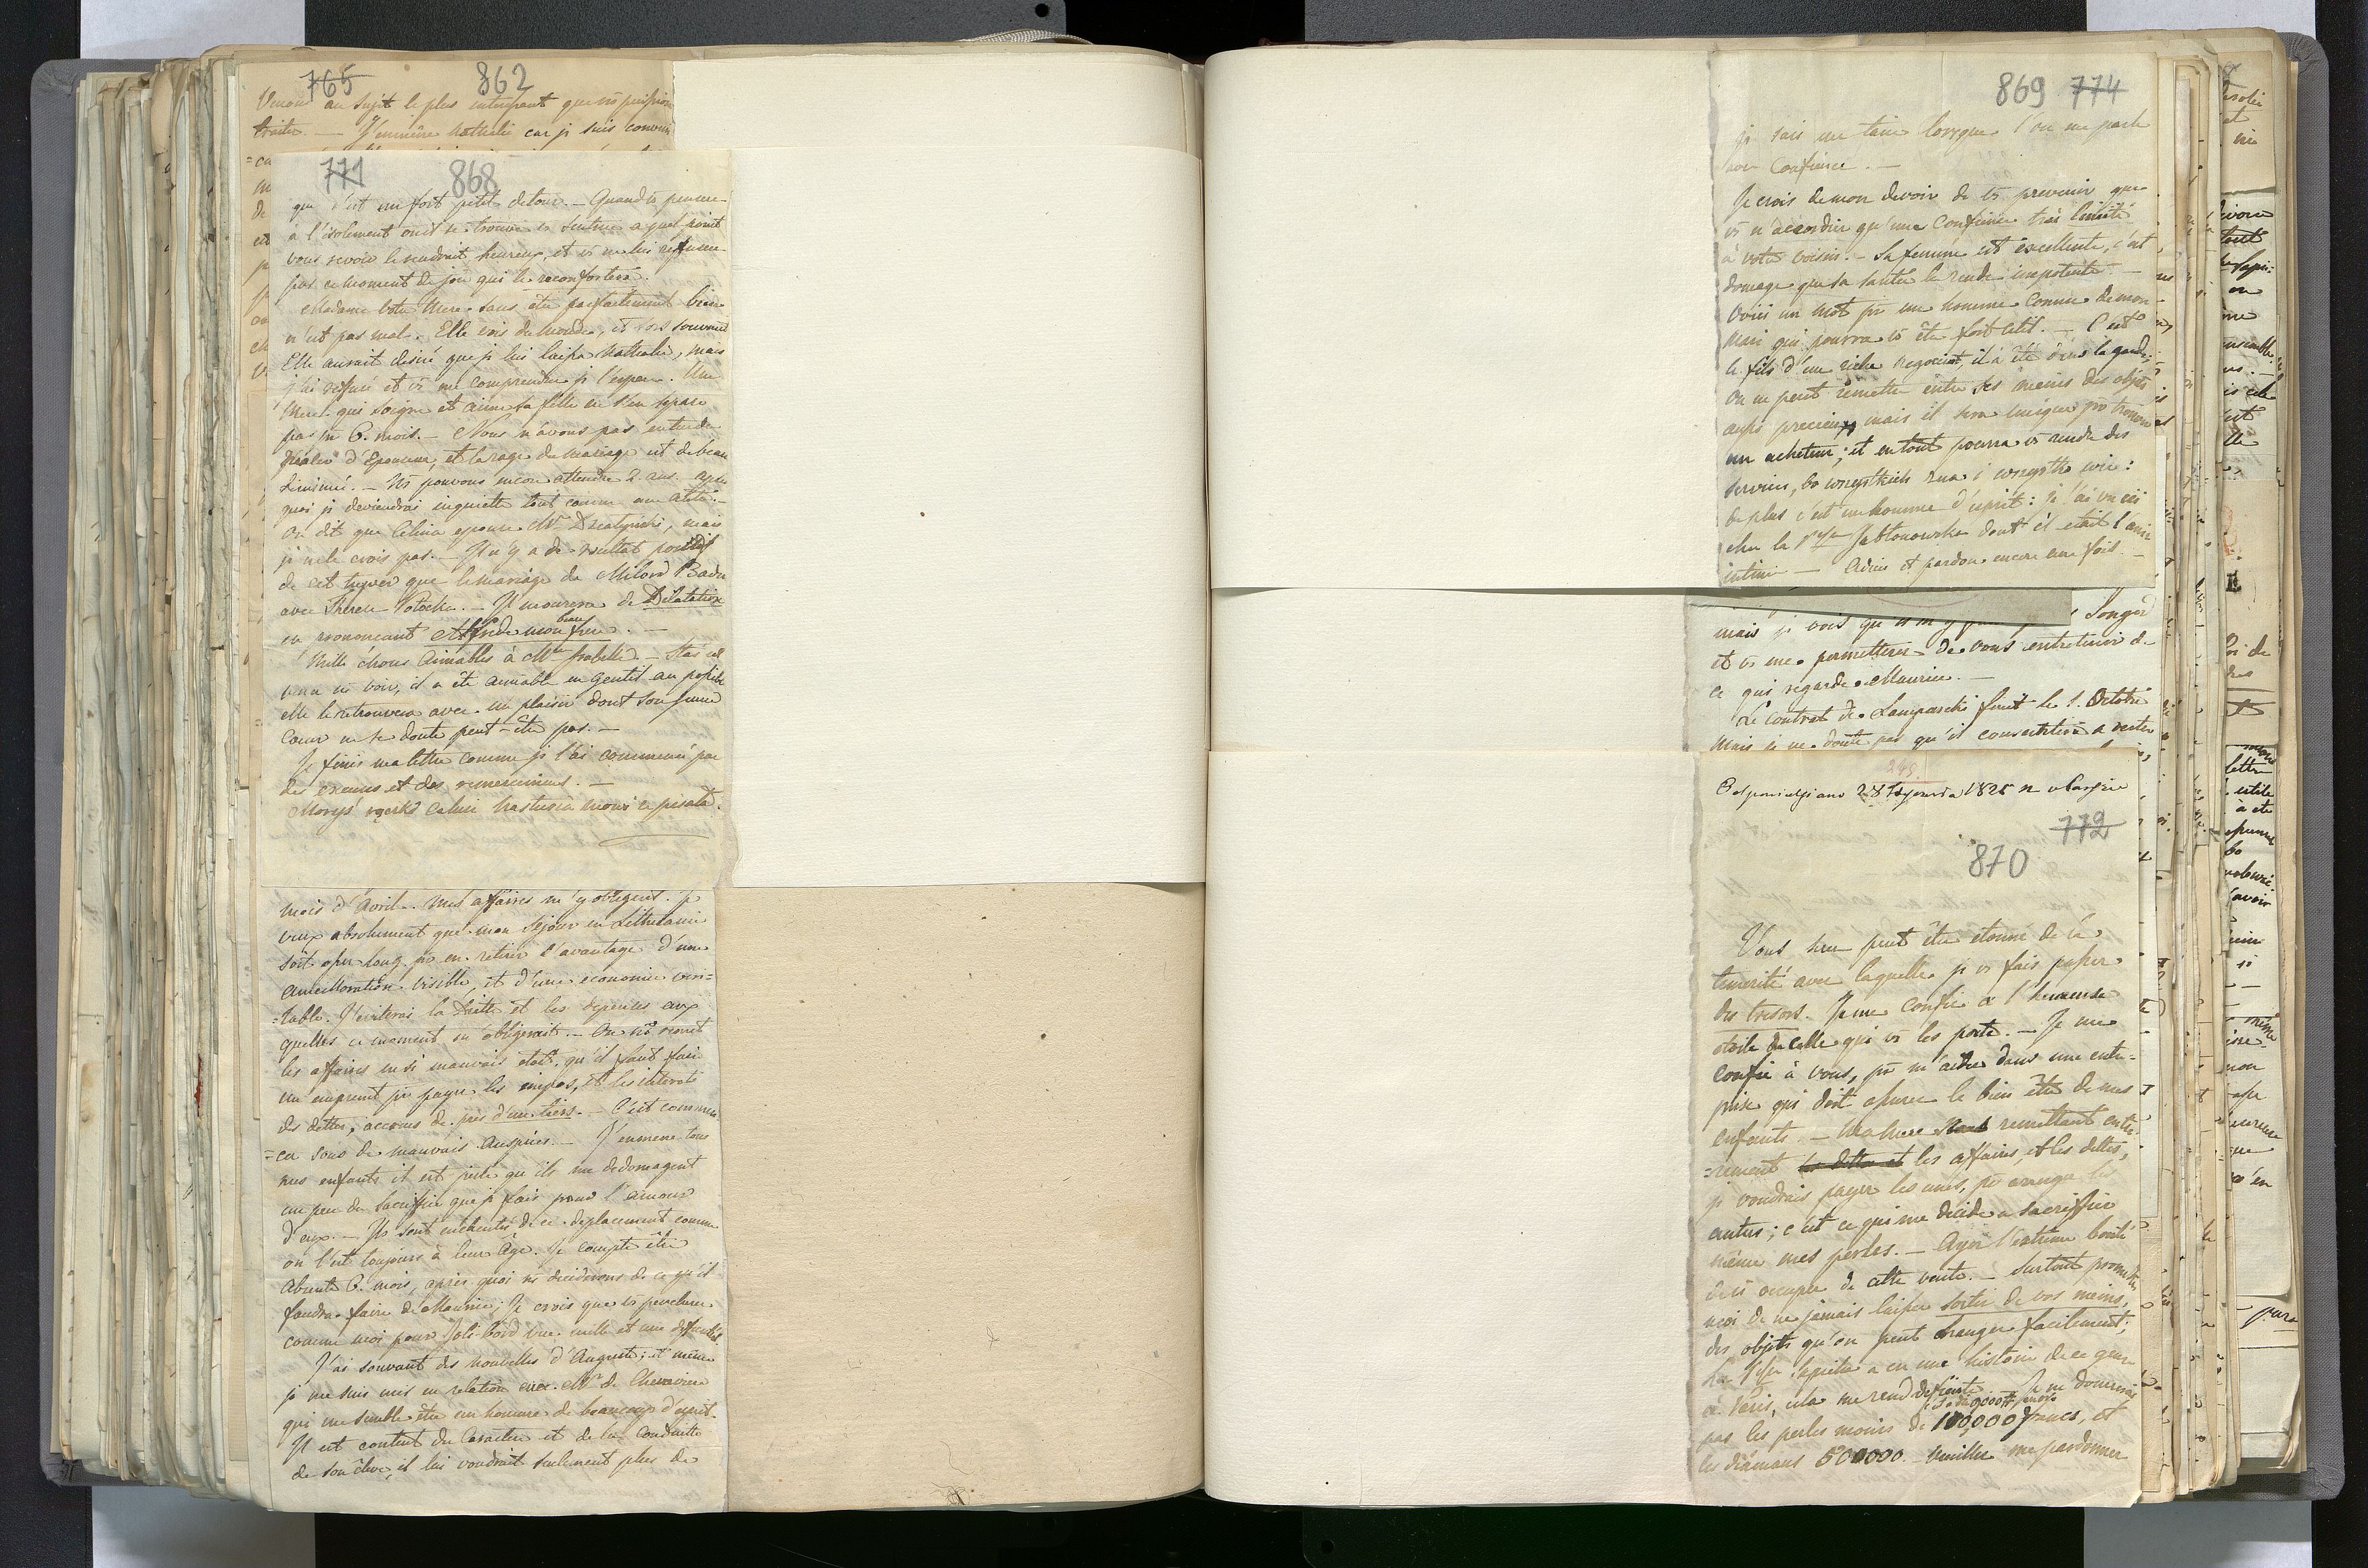 765 862
Venons au sujet le plus
traiter. — J'emmène Nathalie car je suis
771 868
que c'est un fort petit detour. — Quand vs penserez
à l'isolement où il se trouve vs sentirez a quel point
vous revoir le rendrait heureux, et vs ne lui refuserez
pas ce moment de joie qui le reconfortera.
Madame votre Mere sans être parfaitement bien
n'est pas mal. Elle vois du monde, et sors souvent
Elle aurait desiré que je lui laisse Nathalie, mais
j'ai refusé et vs me comprendrez je l'espere. Une
Mere qui soigne et aime sa fille ne s'en separe
pas pr 6. mois. — Nous n'avons pas entendu
parler d'Epouseur, et la rage du mariage est de beau
diminué. — Ns pouvons encore attendre 2 ans. après
quoi je deviendrai inquiette tout comme une autre. —
On dit que Celina epouse Mr Dzialynski, mais
je ne le crois pas. — Il n'y a de resultat positif
de cet hyver que le mariage de Milord
avec Therese Potocka. — Il mourera de Dilatation
en prononçant Alfred mon beau frere. —
Mille choses aimables à Mlle Isabelle —
venu ns voir, il a été aimable en gentil au possible
elle le retrouvera avec un plaisir dont son jeune
Cœur ne se doute peut-être pas. —
Je finis ma lettre comme je l'ai commencé par
des excuses et des remerciments. —
Moryś rączki całuie Nastusia mowi ze pisała.
mois d'Avril. Mes affaires m'y obligent. Je
veux absolument que mon séjour en Lithuanie
soit assez long pr en retirer l'avantage d'une
amelloration visible, et d'une économie veri=
=table. J'eviterai la Diette et les depenses aux
quelles ce moment m'obligerait. — On ns remet
les affaires en si mauvais etat, qu'il faut faire
un emprunt pr payer les impos, et les interets
des dettes, accrues de près d'un tiers. — C'est commen
=cer sous de mauvais Auspices. — J'emmene tous
mes enfants il est juste qu'ils me dedomagent
un peu du sacrifice que je fais pour l'amour
d'eux. — Ils sont enchantés de ce deplacement comme
on l'est toujours à leur âge. Je compte être
Absente 6. mois, après quoi ns deciderons de ce qu'il
faudra faire de Maurice; Je crois que vs pencherez
comme moi pour Joli-bord vue mille et une difficultés
J'ai souvent des nouvelles d'Auguste; et même
je me suis mis en relation avec Mr de Chenevière
qui me semble être un homme de beaucoup d'esprit.
Il est content du Caractere et de la Conduitte
de son élève, il lui voudrait seulement plus de
869 774
je sais me taire lorsque l'on me parle
avec Confience. —
Je crois de mon devoir de vs prevenir que
vs n'accordiez qu'une Confience très limitée
à votre voisin. — Sa femme est excellente, c'est
domage que sa santé la rende impotente. —
Voici un mot pr un homme connu de mon
Mari qui pourra vs être fort utile. — C'est
le fils d'un riche negociant, il a été dans la garde,
On ne peut remettre entre ses mains des objets
aussi precieux mais il sera unique pr trouver
un acheteur; et en tout pourra vs rendre des
services, bo wszystkich zna i wszystko wie:
de plus c'est un homme d'esprit: je l'ai vu ici
chez la Pesse Jabłonowska dont il etait l'ami
intime — Adieu et pardon encore une fois. —
mais je vois qu' songer
et vs me permetterez de vous entretenir de
ce qui regarde Maurice. —
Le contrat de Lamparski finit le 1. Octobre
Mais je ne doute pas qu'il consentira a rester
249.
Odpowiedziano 28 1825 z
772
870
Vous serez peut être etonné de la
temerité avec laquelle je vs fais passer
des tresors. Je me confie à l'heureuse
etoile de celle qui vs les porte. — Je me
confie à vous, pr m'aider dans une entre=
prise qui doit assurer le bien être de mes
enfants. — Ma Mere remettant entie=
=rement les affaires, et les dettes,
je voudrais payer les unes, pr arranger les
autres; c'est ce qui me décide a sacrifier
même mes perles. — Ayez l'extreme bonté
de vs occuper de cette vente. — Surtout promettez
moi de ne jamais laisser sortir de vos mains,
des objets qu'on peut changer facilement;
La Pesse Sapieha a eu une histoire de ce genre
à Paris, cela me rend defiente. Je ne donnerai
pas les perles moins de 100,000 francs, et
les diamans 500000 veuillez me pardonner